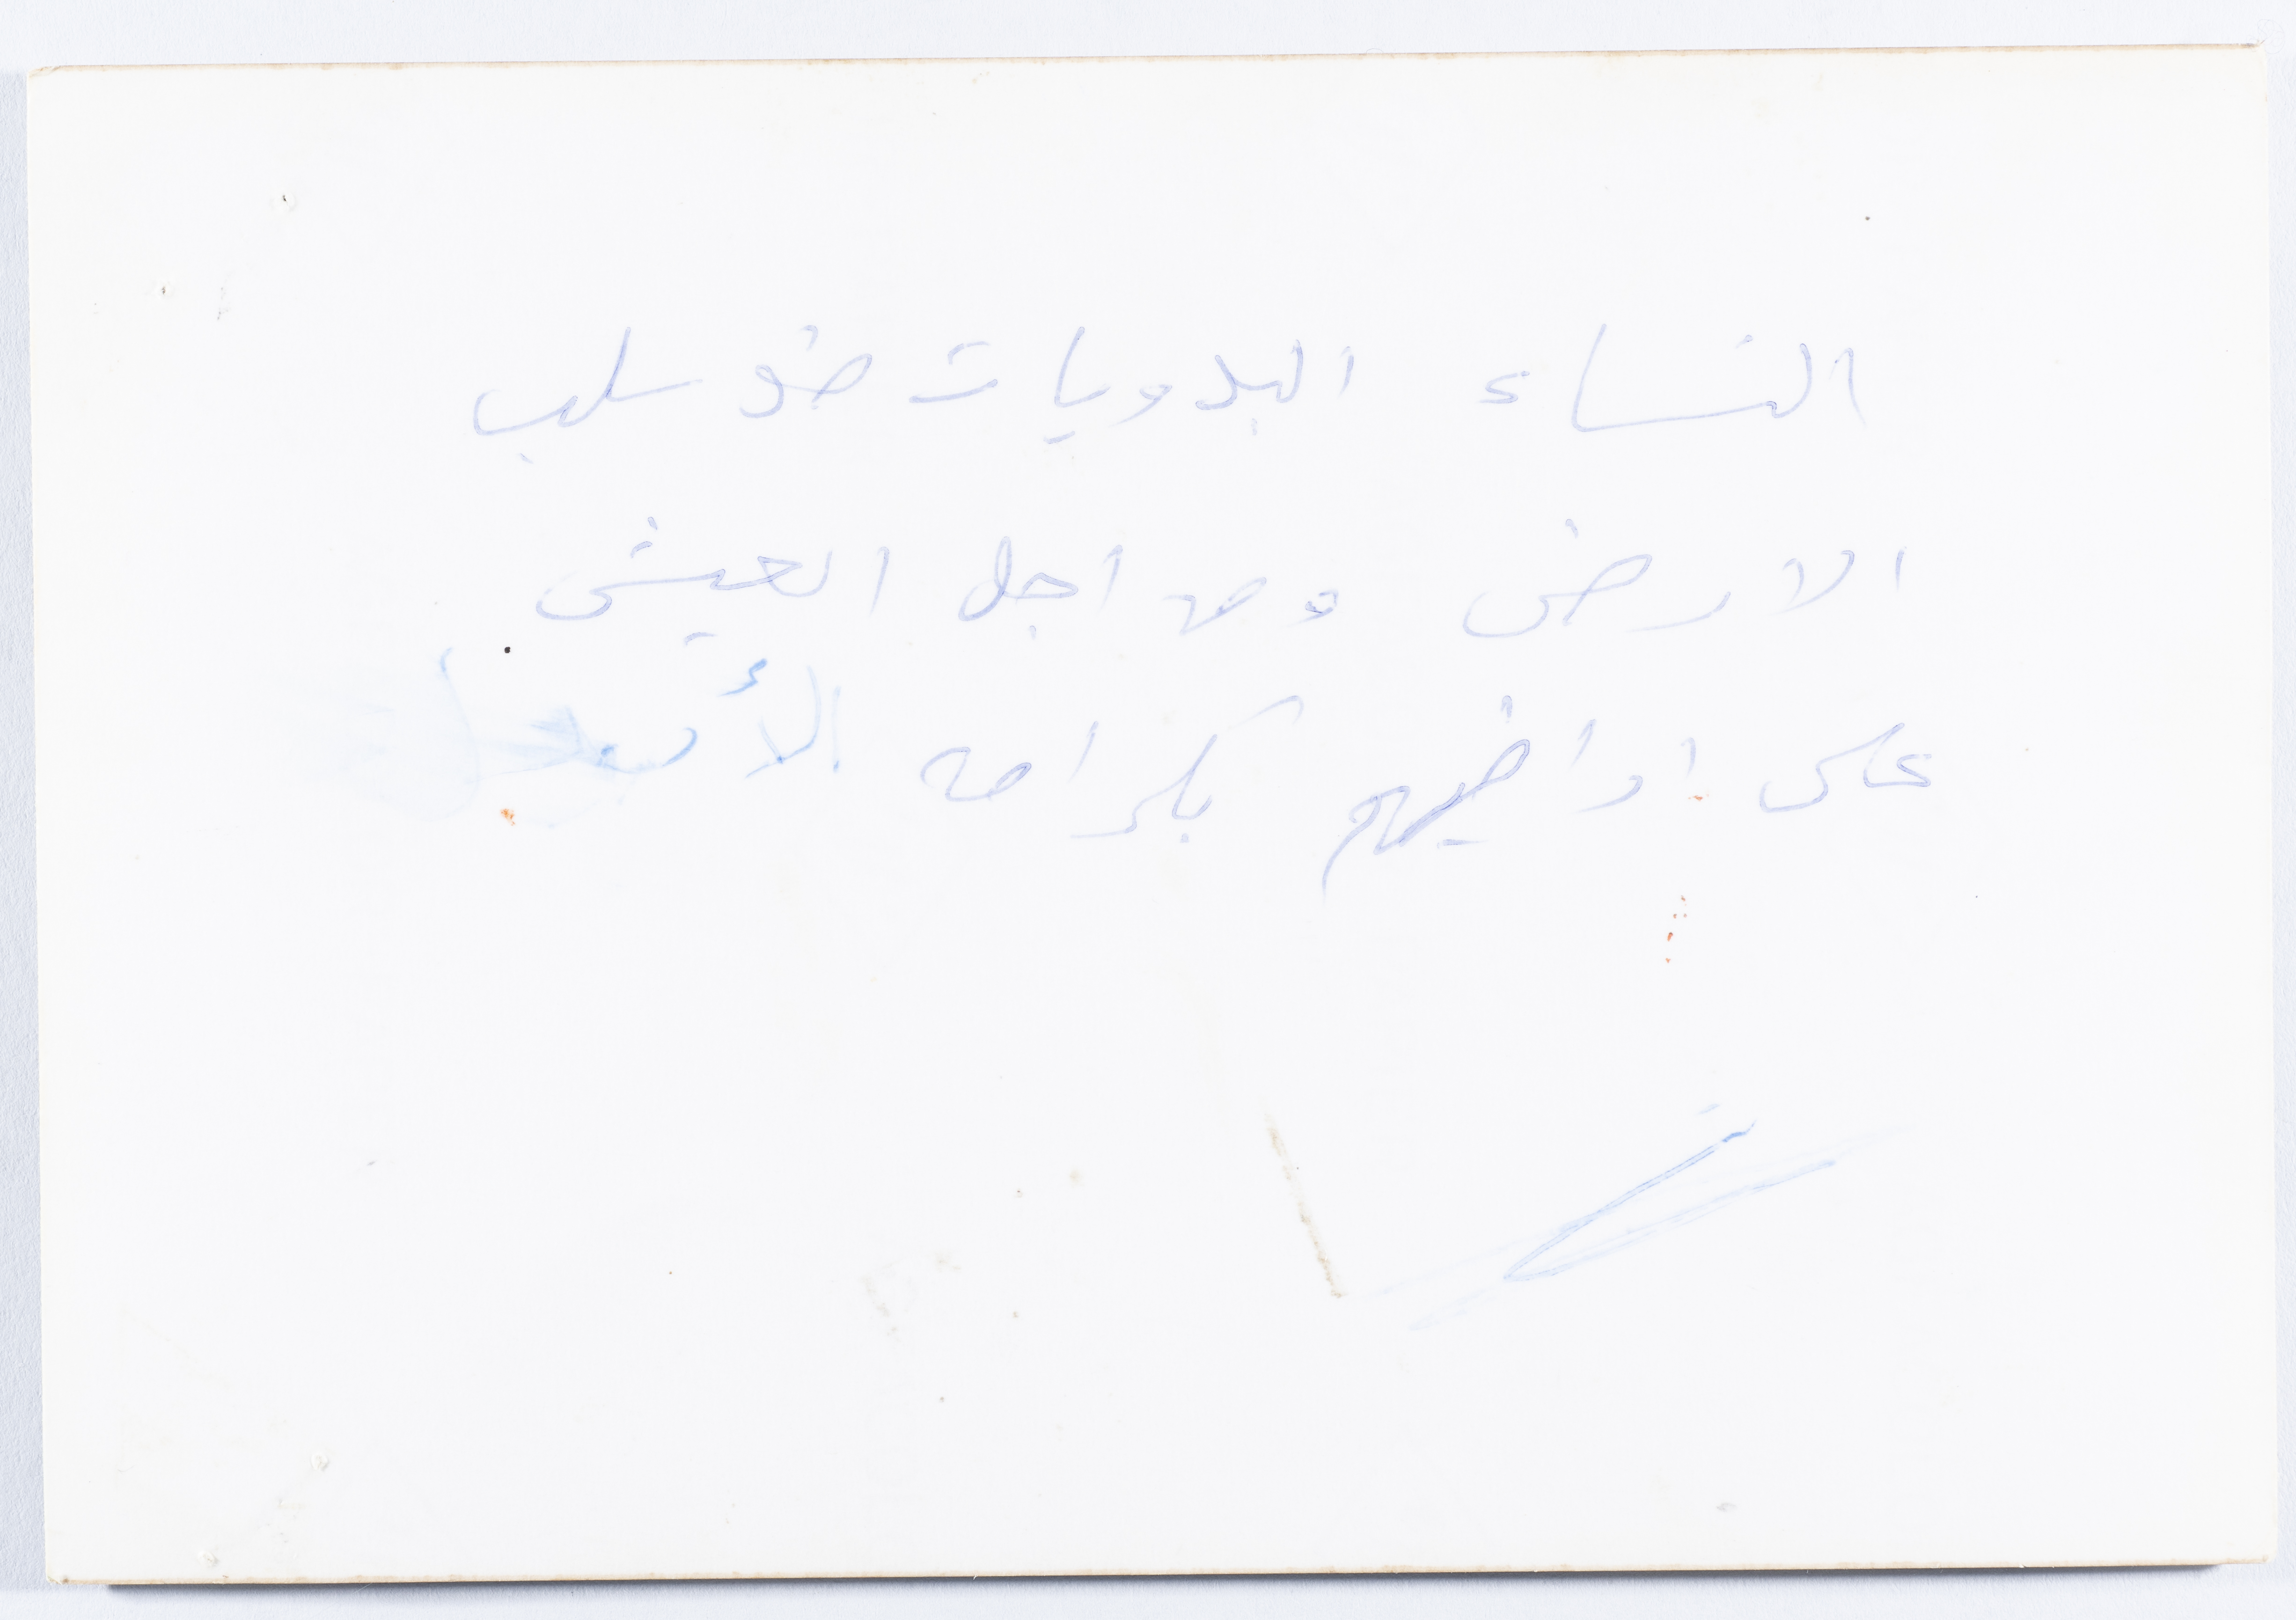 النساء البدويات ضد سلب
الارض ومن اجل العيش
على اراضيهم بكرامه